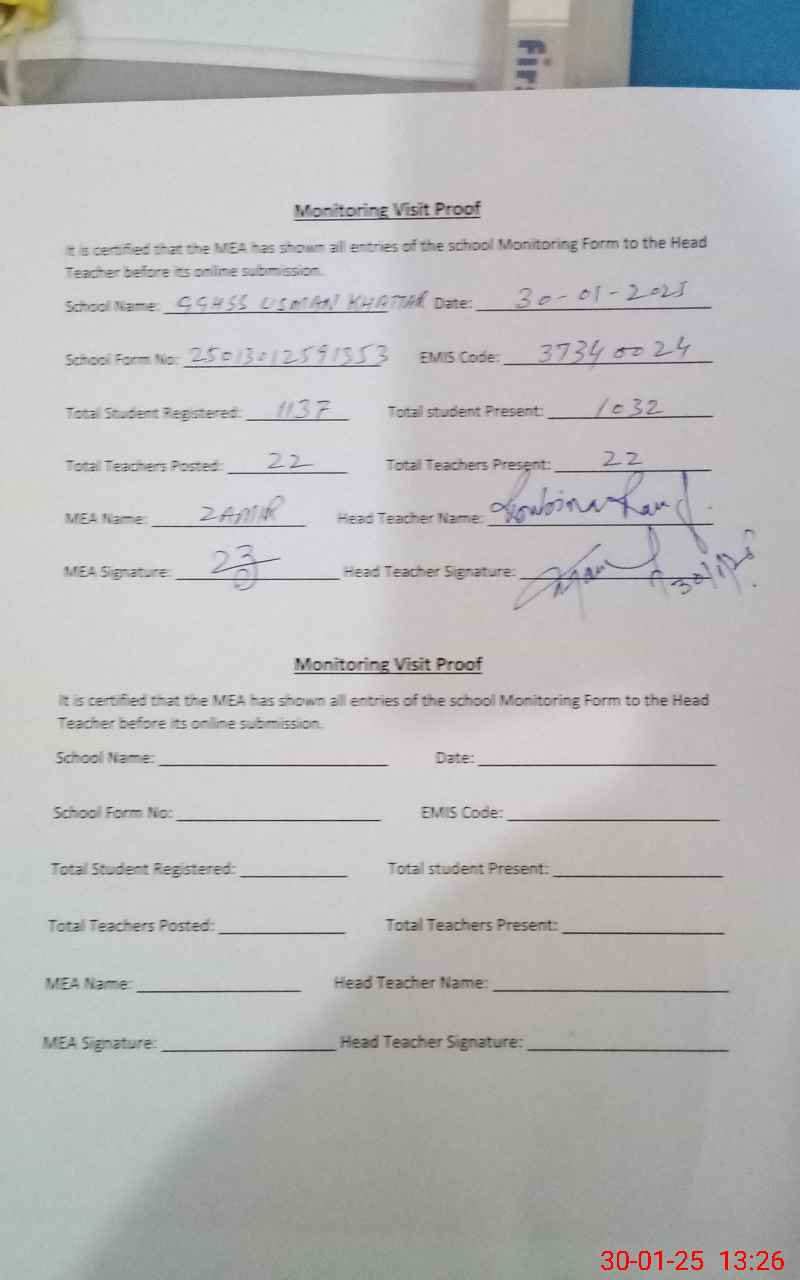 fir
Monitoring Visit Proof
It is certified that the MEA has shown all entries of the school Monitoring Form to the Head
Teacher before its online submission.
School Name: GGHSS USMAN KHATTAR Date: 30-01-2025
School Form No: 25013012591353 EMIS Code: 37340024
Total Student Registered: 1137 Total student Present: 1032
Total Teachers Posted: 22 Total Teachers Present: 22
MEA Name: ZAMIR Head Teacher Name:
MEA Signature: Head Teacher Signature: 30/1/25
Monitoring Visit Proof
It is certified that the MEA has shown all entries of the school Monitoring Form to the Head
Teacher before its online submission.
School Name: Date:
School Form No: EMIS Code:
Total Student Registered: Total student Present:
Total Teachers Posted: Total Teachers Present:
MEA Name: Head Teacher Name:
MEA Signature: Head Teacher Signature:
30-01-25 13:26